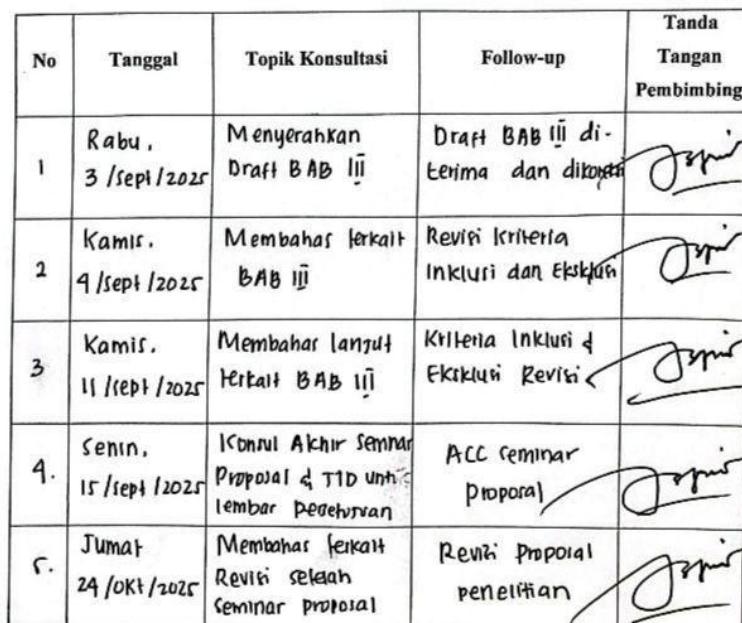 No Tanggal Topik Konsultasi Follow-up Tanda Tangan Pembimbing
1
Rabu,
3 /Sept/2025
Menyerahkan
Draft BAB III
Draft BAB III di-
terima dan dikoreksi
2
Kamis,
4 /Sept /2025
Membahas terkait
BAB III
Revisi kriteria
Inklusi dan Eksklusi
3
Kamis,
11 /Sept /2025
Membahas lanjut
terkait BAB III
Kriteria Inklusi &
Eksklusi Revisi
4.
Senin,
15 /Sept /2025
Konsul Akhir Seminar
Proposal & TTD untuk
lembar persetujuan
ACC seminar
proposal
5.
Jumat
24 /Okt/2025
Membahas terkait
Revisi setelah
Seminar proposal
Revisi proposal
penelitian